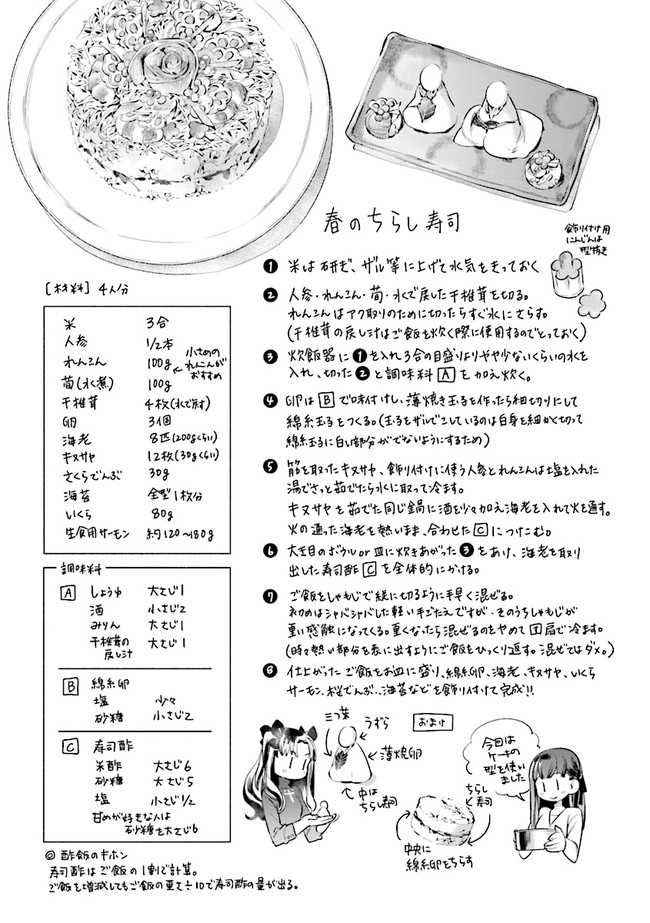 春のちらし寿司
飾り付け用
にんじんは
型抜き
[材料] 4人分
米 3合
人参 1/2本
れんこん 100g ← 小さめの
れんこんが
おすすめ
筍(水煮) 100g
干椎茸 4枚(水で戻す)
卵 3個
海老 8匹(200gくらい)
キヌサヤ 12枚(30gくらい)
さくらでんぶ 30g
海苔 全型1枚分
いくら 80g
生食用サーモン 約120~180g
調味料
A しょうゆ 大さじ1
酒 小さじ2
みりん 大さじ1
干椎茸の 大さじ1
戻し汁
B 綿糸卵
塩 少々
砂糖 小さじ2
C 寿司酢
米酢 大さじ6
砂糖 大さじ5
塩 小さじ1/2
甘めが好きな人は
砂糖を大さじ6
◎ 酢飯のキホン
寿司酢はご飯の1割で計算。
ご飯を増減してもご飯の重さ÷10で寿司酢の量が出る。
❶ 米は研ぎ、ザル等に上げて水気をきっておく
❷ 人参・れんこん・筍・水で戻した干椎茸を切る。
れんこんはアク取りのために切ったらすぐ水にさらす。
(干椎茸の戻し汁はご飯を炊く際に使用するのでとっておく)
❸ 炊飯器に❶を入れ3合の目盛りよりやや少ないくらいの水を
入れ、切った❷と調味料Aを加え炊く。
❹ 卵はBで味付けし、薄焼き玉子を作ったら細切りにして
綿糸玉子をつくる。(玉子をザルでこしているのは白身を細かく切って
綿糸玉子に白い部分がでないようにするため)
❺ 筋を取ったキヌサヤ、飾り付けに使う人参とれんこんは塩を入れた
湯でさっと茹でたら水に取って冷ます。
キヌサヤを茹でた同じ鍋に酒を少々加え海老を入れて火を通す。
火の通った海老を熱いまま、合わせたCにつけこむ。
❻ 大き目のボウルor皿に炊きあがった❸をあけ、海老を取り
出した寿司酢Cを全体的にかける。
❼ ご飯をしゃもじで縦に切るように手早く混ぜる。
初めはシャバシャバした軽い手ごたえですが、そのうちしゃもじが
重い感触になってくる。重くなったら混ぜるのをやめて団扇で冷ます。
(時々熱い部分を表に出すようにご飯をひっくり返す。混ぜてはダメ。)
❽ 仕上がったご飯をお皿に盛り、綿糸卵、海老、キヌサヤ、いくら
サーモン、桜でんぶ、海苔などを飾り付けて完成!!
おまけ
三つ葉
うずら
薄焼卵
中は
ちらし寿司
今回は
ケーキの
型を使い
ました
ちらし
寿司
中央に
綿糸卵をちらす